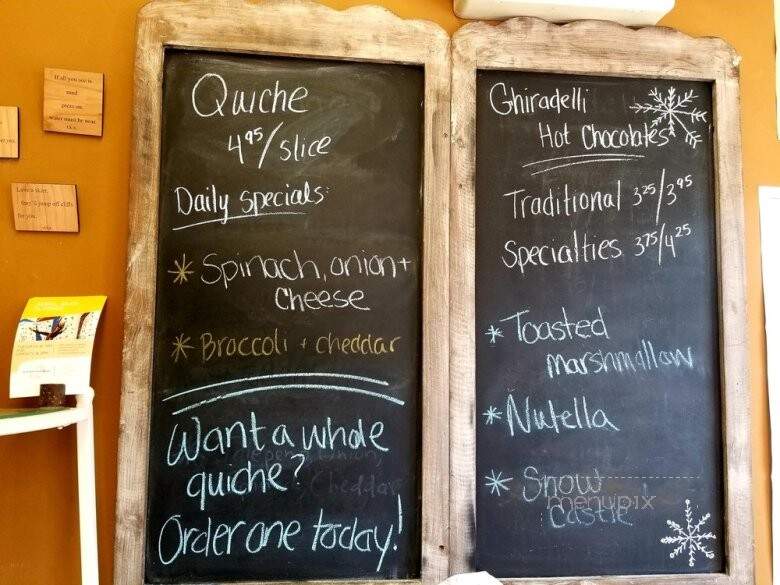 Quiche
4⁹⁵/slice
Daily specials:
* Spinach, onion +
Cheese
* Broccoli + cheddar
Want a whole
quiche?
Order one today!
Ghiradelli
Hot Chocolates
Traditional 3²⁵/3⁹⁵
Specialties 3⁷⁵/4²⁵
* Toasted
marshmallow
* Nutella
* Snow
Castle
menupix
If all you see is
mud
water must be near.
they'll jump off cliffs
for you.